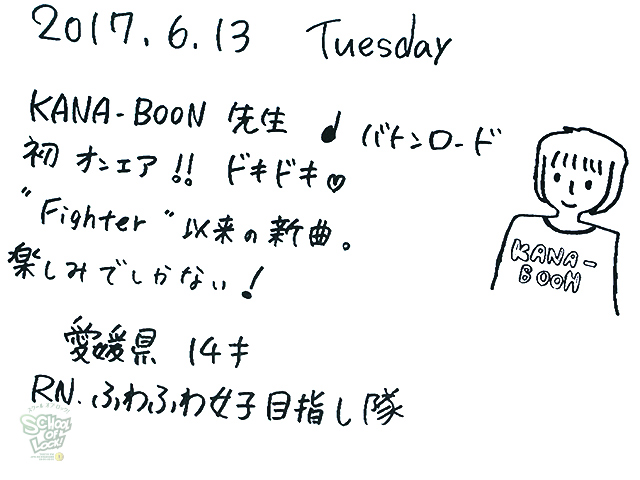 2017.6.13 Tuesday
KANA-BOON 先生 ♩ バトンロード
初 オンエア!! ドキドキ♡
"Fighter" 以来の新曲。
楽しみでしかない!
愛媛県 14才
RN. ふわふわ女子目指し隊
KANA-
BOON
SCHOOL
OF
LOCK!